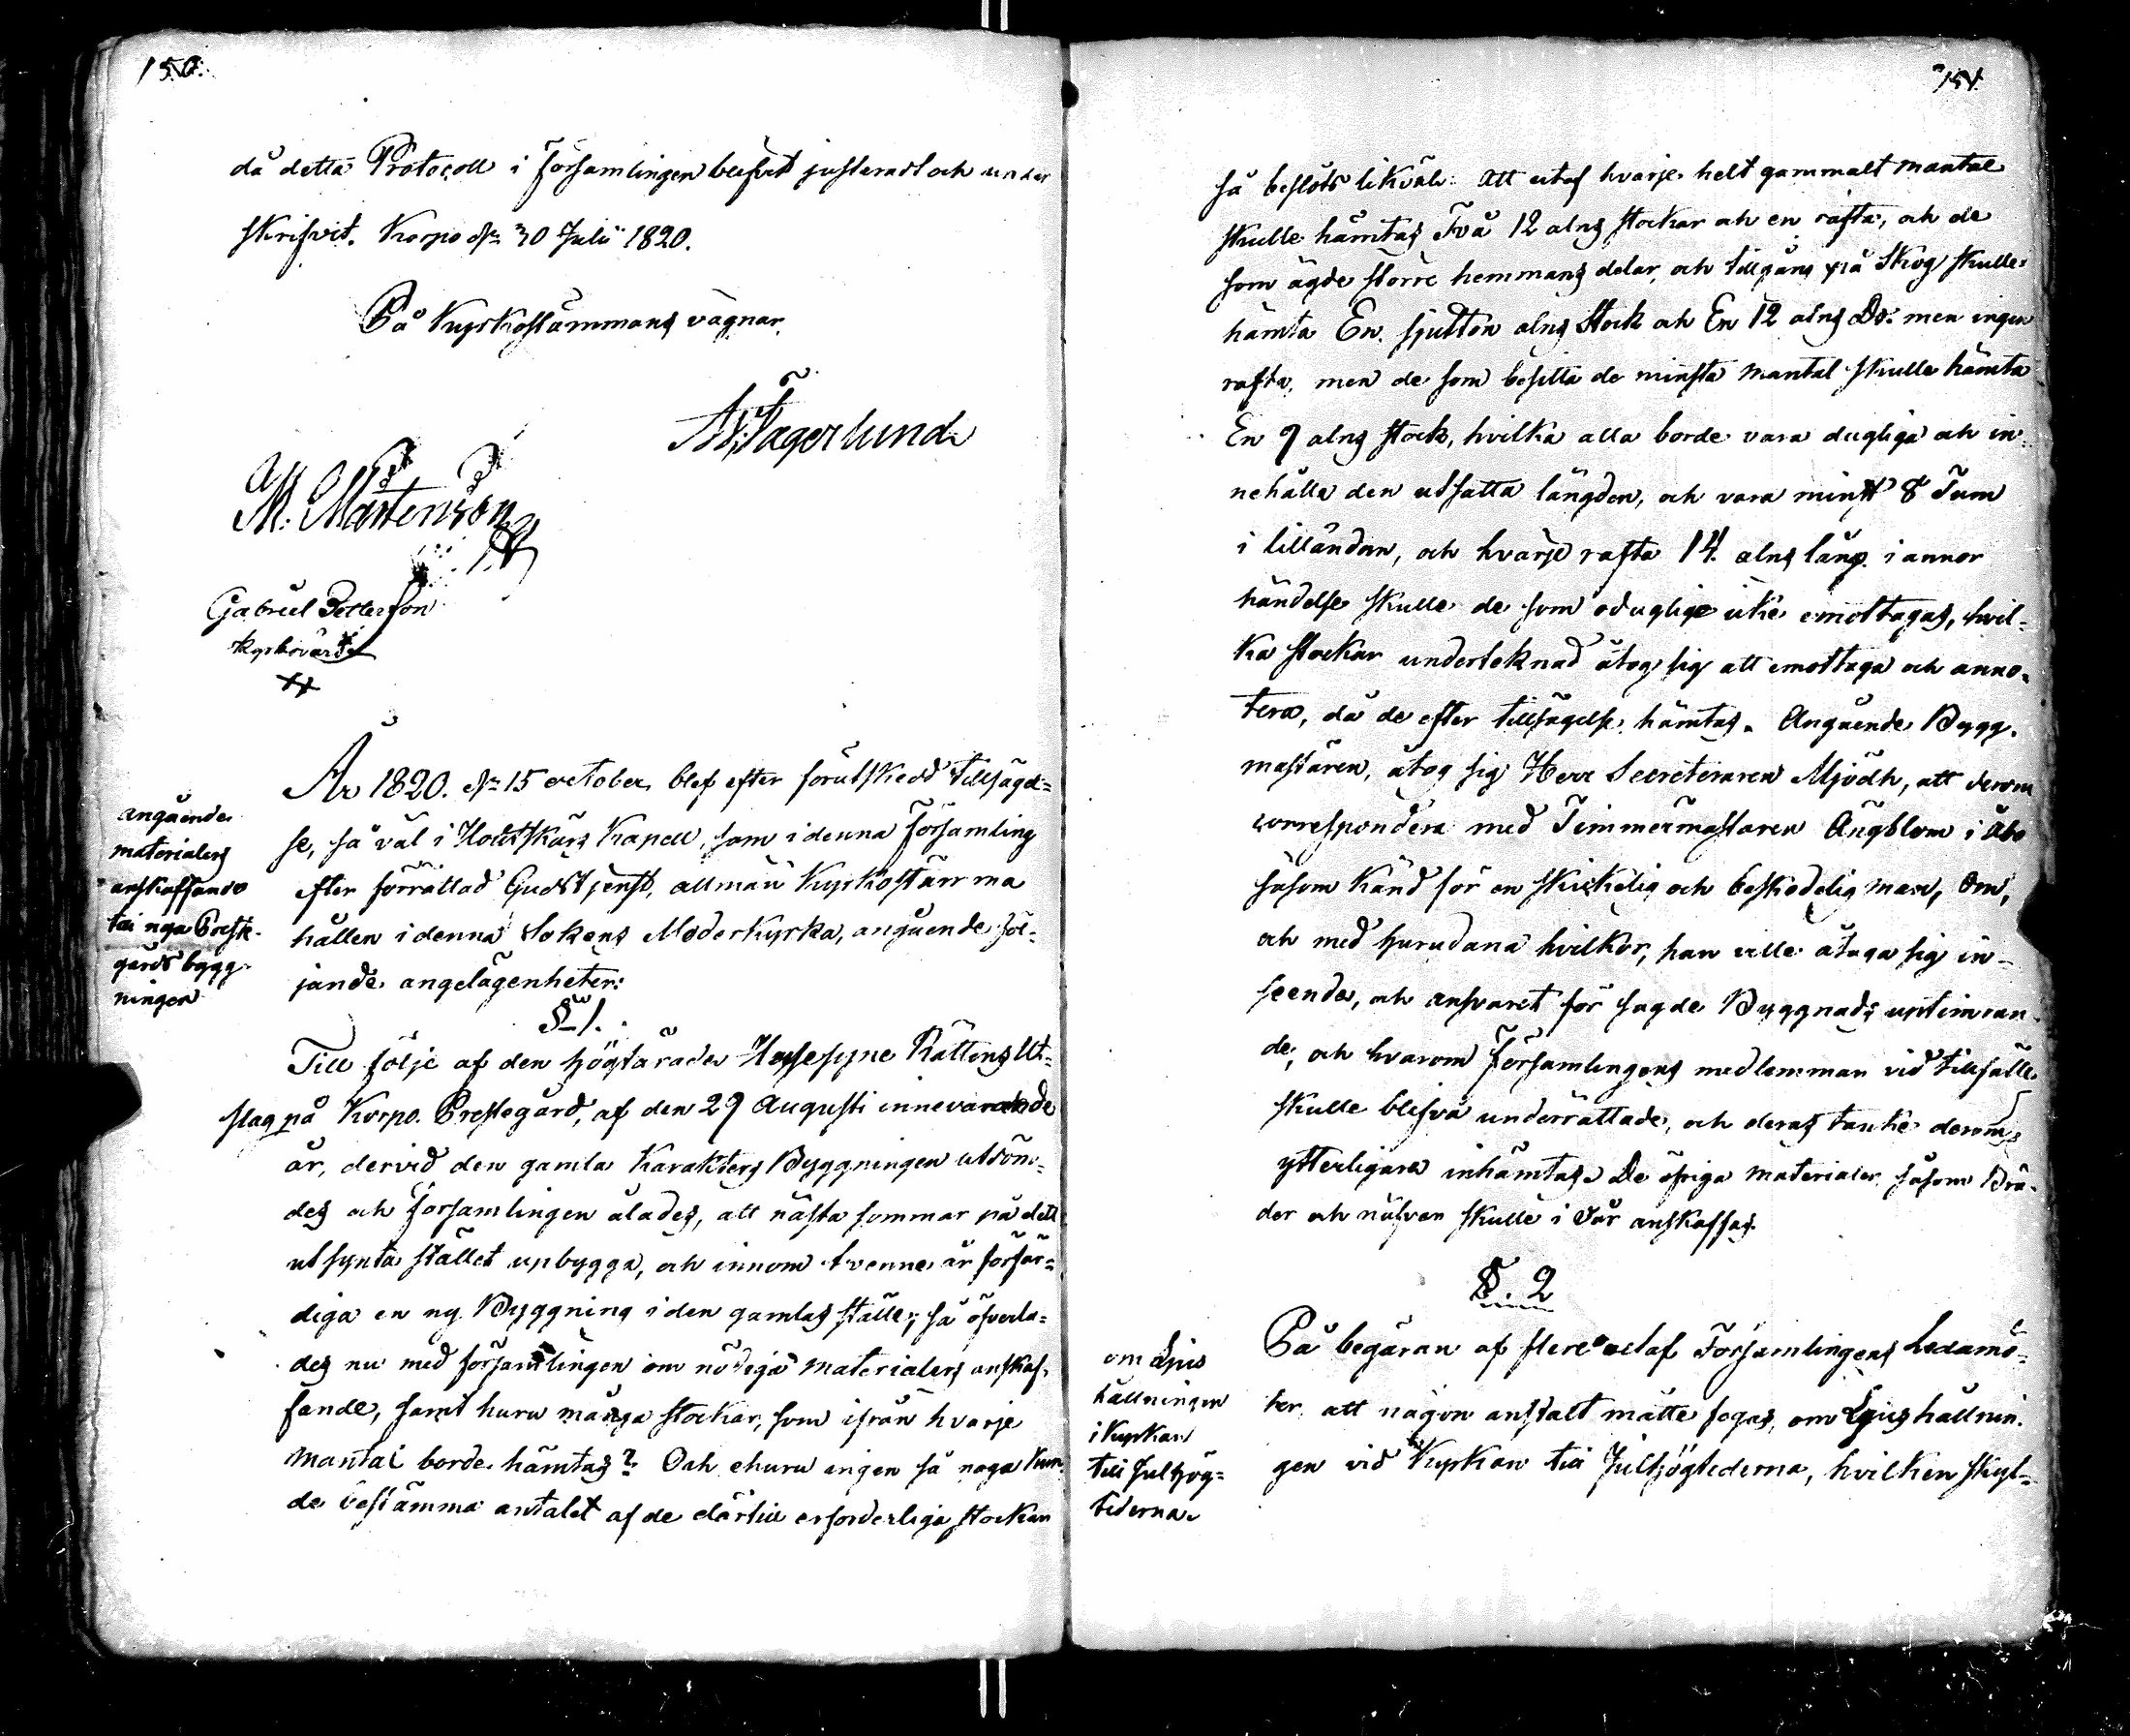 150.
då detta Protocoll i Församlingen blifvit justeradt och under
skrifvit. Korpo dn 30 Julii 1820.
På Kyrkostämmans vägnar
A. Fagerlund
M: Mårtenson
Gabriel Petterson
Kyrkovärd
angående
materialers
anskaffande
till nya Preste-
gårds bygg-
ningen
År 1820. dn 15 October blef efter förutskedd tillsägel=
se, så väl i Houtskärs Kapell, som i denna Församling
efter förrättad Gudstjenst, allmän Kyrkostämma
hållen i denna Sokens Moderkyrka, angående föl=
jande angelägenheter:
§ 1.
Till följe af den högtärade Husesyne Rättens Ut=
slag på Korpo Prestegård, af den 29 Augusti innevarande
år, dervid den gamla Karakters Byggningen utdöm=
des och Församlingen ålades, att nästa sommar på dett
utsynta stället upbygga, och innom tvenne år förfär=
diga en ny Byggning i den gamlas ställe; så öfverla=
des nu med församlingen om nödiga materialers anskaf=
fande, samt huru många stockar, som ifrån hvarje
Mantal borde hämtas? Och ehuru ingen så noga kun=
de bestämma antalet af de därtill erforderliga stockar
151.
så beslöts likväl: att utaf hvarje helt gammalt mantal
skulle hämtas Två 12 alns stockar och en rafta, och de
som ägde större hemmans delar, och tillgång på Skog skulle
hämta En sjutton alns Stock och En 12 alns Do: men ingen
rafta, men de som besitta de minsta mantal skulle hämta
En 9 alns stock, hvilka alla borde vara dugliga och in=
nehålla den utsatta längden, och vara minst 8 Tum
i lilländan, och hvarje rafta 14 alns lång. i annor
händelse skulle de som oduglige icke emottagas, hvil=
ka stockar undertecknad åtog sig att emottaga och anno=
tera, då de efter tillsägelse hämtas. Angående Bygg=
mästaren, åtog sig Herr Secreteraren Mjödh, att derom
correspondera med Timmermästaren Ängblom i Åbo
såsom känd för en skickelig och beskedelig man, om,
och med hurudana vilkor, han ville åtaga sig in=
seende, och ansvaret för sagde Byggnads uptimran=
de, och hvarom Församlingens medlemmar vid tillfälle
skulle blifva underrättade, och deras tanke derom
ytterligare inhämtas. De öfriga materialer såsom Brä=
der och näfver skulle i Vår anskaffas.
§. 2
om Ljus
hållningen
i Kyrkan
till Julhög=
tiderna.
På begäran af flere utaf Församlingens Ledamö=
ter, att någon anstalt måtte fogas, om Ljushållnin=
gen vid Kyrkan till Julhögtiderna, hvilken skyl=